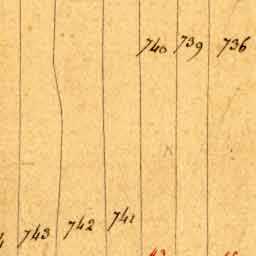 740 739 736
743 742 741